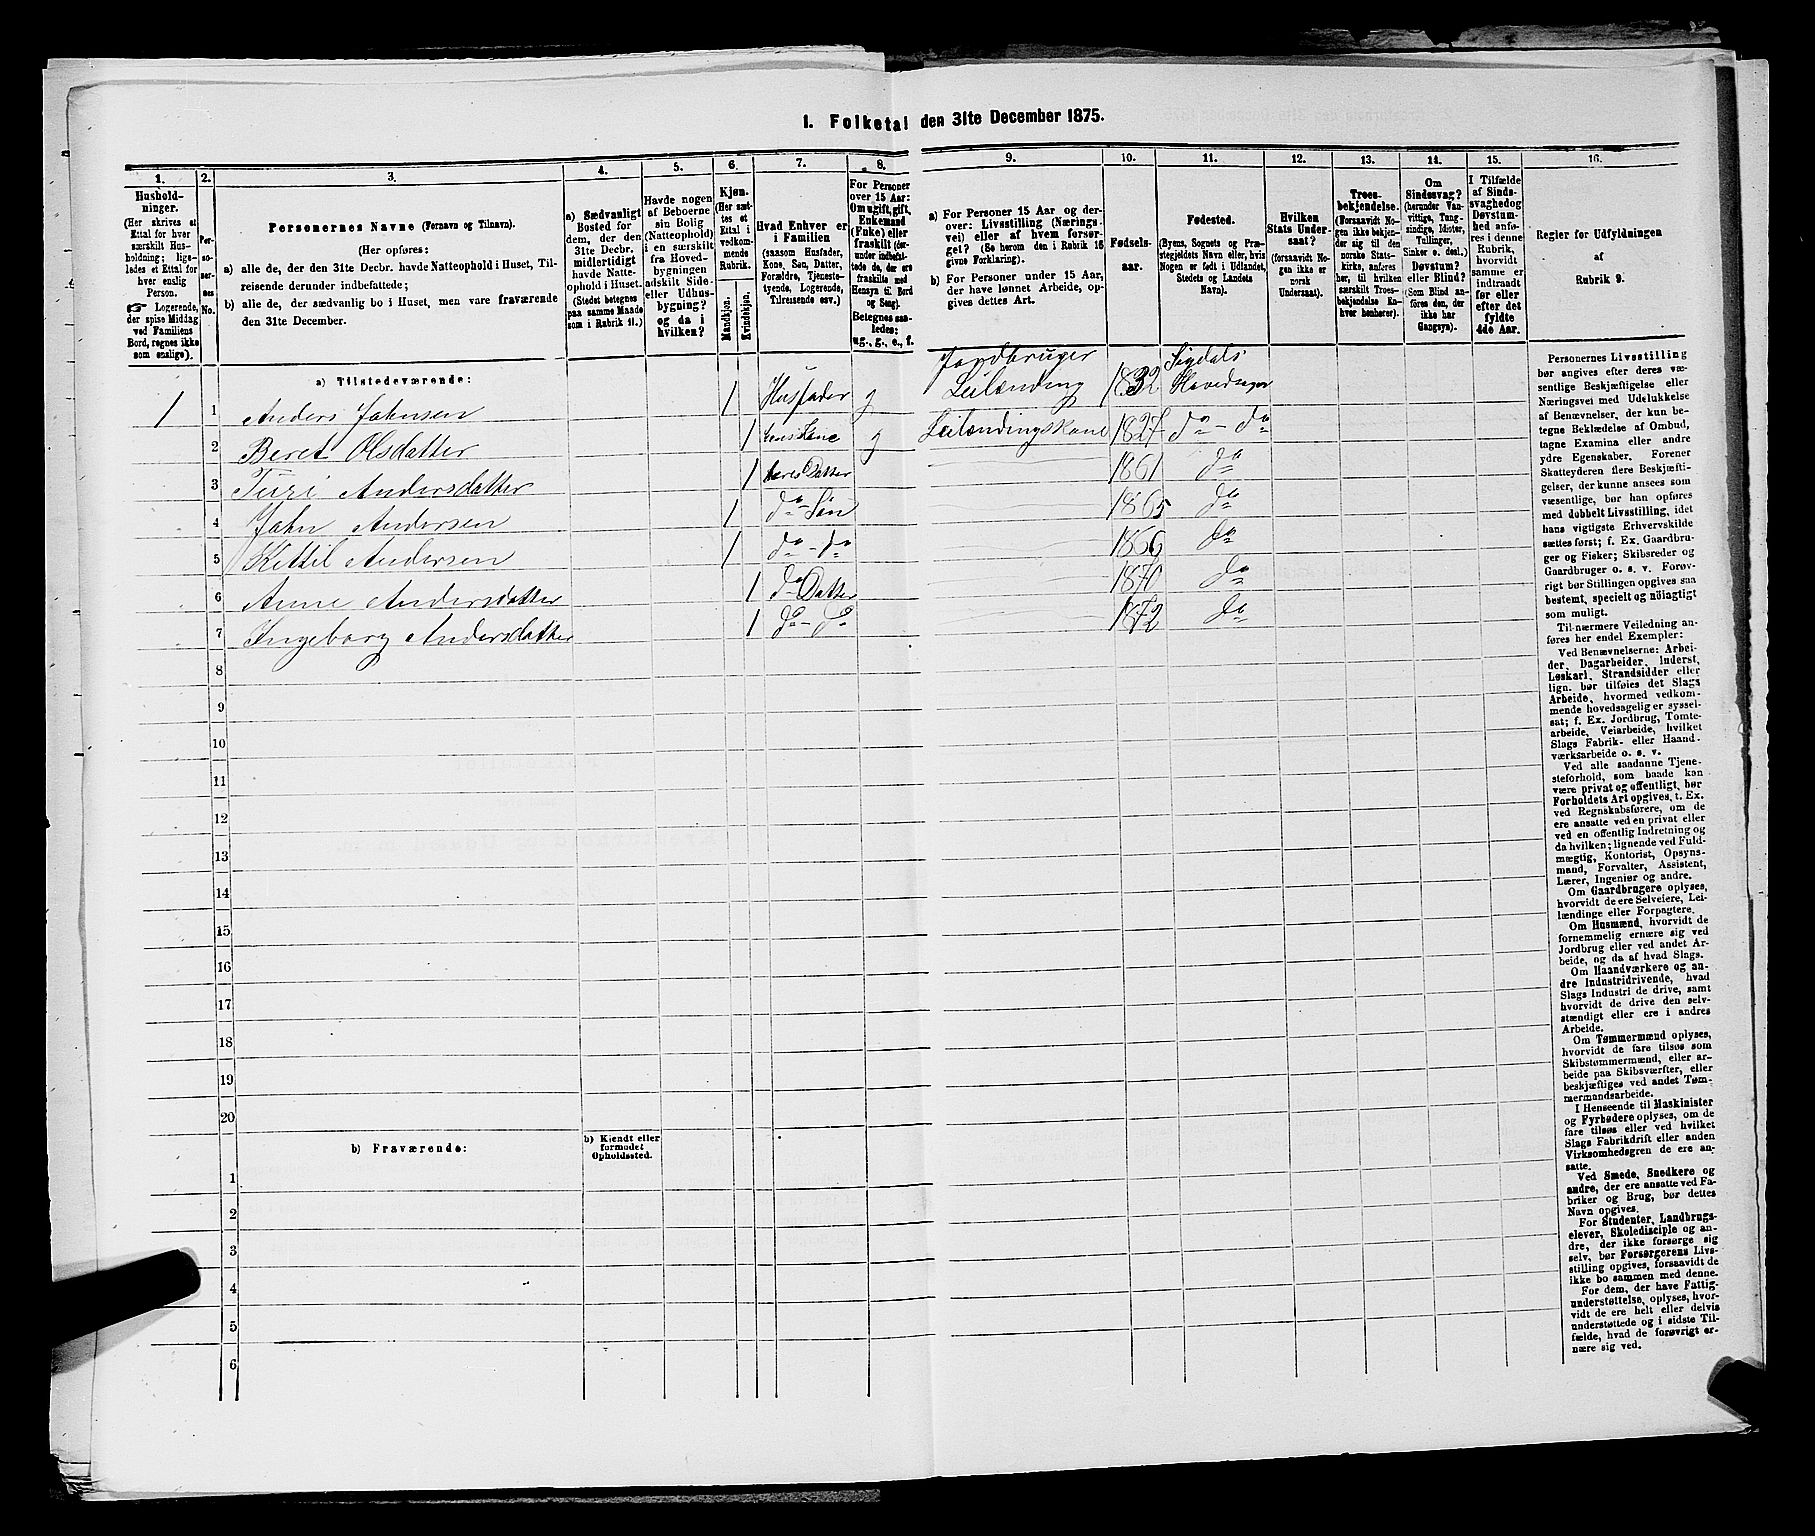 1. Folketal den 31te December 1875.
1. 2. 3. 4. 5. 6. 7. 8. 9. 10. 11. 12. 13. 14. 15. 16.
Hushold-
ninger.
(Her skrives et
Ettal for hver
særskilt Hus-
holdning; lige-
ledes et Ettal for
hver enslig
Person.
☞ Logerende,
der spise Middag
ved Familiens
Bord, regnes ikke
som enslige).
Per-
so-
ner-
nes
No.
Personernes Navne (Fornavn og Tilnavn).
(Her opføres:
a) alle de, der den 31te Decbr. havde Natteophold i Huset, Til-
reisende derunder indbefattede;
b) alle de, der sædvanlig bo i Huset, men vare fraværende
den 31te December.
a) Sædvanligt
Bosted for
dem, der den
31te Decbr.
midlertidigt
havde Natte-
ophold i Huset.
(Stedet betegnes
paa samme Maade
som i Rubrik 11.)
Havde nogen
af Beboerne
sin Bolig
(Natteophold)
i en særskilt
fra Hoved-
bygningen
adskilt Side-
eller Udhus-
bygning?
og da i
hvilken?
Kjøn.
(Her sæt-
tes et
Ettal i
vedkom-
mende
Rubrik.
Mandkjøn.
Kvindekjøn.
Hvad Enhver er
i Familien
(saasom Husfader,
Kone, Søn, Datter,
Forældre, Tjeneste-
tyende, Logerende,
Tilreisende osv.)
For Personer
over 15 Aar:
Om ugift, gift,
Enkemand
(Enke) eller
fraskilt (der-
under indbefat-
tede de, der ere
fraskilte med
Hensyn til Bord
og Seng).
Betegnes saa-
ledes:
ug., g., e., f.
a) For Personer 15 Aar og der-
over: Livsstilling (Nærings-
vei) eller af hvem forsør-
get? (Se herom den i Rubrik 16
givne Forklaring).
b) For Personer under 15 Aar,
der have lønnet Arbeide, op-
gives dettes Art.
Fødsels-
aar.
Fødested.
(Byens, Sognets og Præ-
stegjeldets Navn eller, hvis
Nogen er født i Udlandet,
Stedets og Landets
Navn).
Hvilken
Stats Under-
saat?
(forsaavidt No-
gen ikke er
norsk
Undersaat).
Troes-
bekjendelse.
(Forsaavidt No-
gen ikke bekjen-
der sig til den
norske Stats-
kirke, anføres
her, til hvilken
særskilt Troes-
bekjendelse En-
hver henhører).
Om
Sindssvag?
(herunder Van-
vittige, Tung-
sindige, Idioter,
Tullinger,
Sinker o. desl.)
Døvstum?
eller Blind?
(Som Blind an-
føres den, der
ikke har
Gangsyn).
I Tilfælde
af Sinds-
svaghed og
Døvstum-
hed anfø-
res i denne
Rubrik,
hvorvidt
samme er
indtraadt
før eller
efter det
fyldte
4de Aar.
Regler for Udfyldningen
af
Rubrik 9.
a) Tilstedeværende:
1 1 Anders Jahnsen 1 Husfader g Jordbruger Leilænding 1832 Sigdals Hovedsogn
2 Beret Olsdatter 1 hans Kone g Leilændingskone 1827 do - do
3 Turi Andersdatter 1 deres Datter 1861 do
4 Jahn Andersen 1 do - Søn 1865 do
5 Kittil Andersen 1 do - do 1866 do
6 Anne Andersdatter 1 do Datter 1870 do
7 Ingeborg Andersdatter 1 do - do 1872 do
8
9
10
11
12
13
14
15
16
17
18
19
20
b) Fraværende:
b) Kjendt eller
formodet
Opholdssted.
1
2
3
4
5
6
Personernes Livsstilling
bør angives efter deres væ-
sentlige Beskjæftigelse eller
Næringsvei med Udelukkelse
af Benævnelser, der kun be-
tegne Beklædelse af Ombud,
tagne Examina eller andre
ydre Egenskaber. Forener
Skatteyderen flere Beskjæfti-
gelser, der kunne ansees som
væsentlige, bør han opføres
med dobbelt Livsstilling, idet
hans vigtigste Erhvervskilde
sættes først; f. Ex. Gaardbru-
ger og Fisker; Skibsreder og
Gaardbruger o. s. v. Forøv-
rigt bør Stillingen opgives saa
bestemt, specielt og nöiagtigt
som muligt.
Til nærmere Veiledning an-
føres her endel Exempler:
Ved Benævnelserne: Arbei-
der, Dagarbeider, Inderst,
Løskarl, Strandsidder eller
lign. bør tilføies det Slags
Arbeide, hvormed vedkom-
mende hovedsagelig er syssel-
sat; f. Ex. Jordbrug, Tomte-
arbeide, Veiarbeide, hvilket
Slags Fabrik- eller Haand-
værksarbeide o. s. v.
Ved alle saadanne Tjene-
steforhold, som baade kan
være privat og offentligt, bør
Forholdets Art opgives, t. Ex.
ved Regnskabsførere, om de
ere ansatte ved en privat eller
ved en offentlig Indretning og
da hvilken; lignende ved Fuld-
mægtig, Kontorist, Opsyns-
mand, Forvalter, Assistent,
Lærer, Ingeniør og andre.
Om Gaardbrugere oplyses,
hvorvidt de ere Selveiere, Lei-
lændinge eller Forpagtere.
Om Husmænd, hvorvidt de
fornemmelig ernære sig ved
Jordbrug eller ved andet Ar-
beide, og da af hvad Slags.
Om Haandværkere og an-
dre Industridrivende, hvad
Slags Industri de drive, samt
hvorvidt de drive den selv-
stændigt eller ere i andres
Arbeide.
Om Tømmermænd oplyses,
hvorvidt de fare tilsøs som
Skibstømmermænd, eller ar-
beide paa Skibsværfter, eller
beskjæftiges ved andet Tøm-
mermandsarbeide.
I Henseende til Maskinister
og Fyrbødere oplyses, om de
fare tilsøs eller ved hvilket
Slags Fabrikdrift eller anden
Virksomhedsgren de ere an-
satte.
Ved Smede, Snedkere og
andre, der ere ansatte ved Fa-
briker og Brug, bør dettes
Navn opgives.
For Studenter, Landbrugs-
elever, Skoledisciple og an-
dre, der ikke forsørge sig
selv, bør Forsørgerens Livs-
stilling opgives, forsaavidt de
ikke bo sammen med denne.
For dem, der have Fattig-
understøttelse, oplyses, hvor-
vidt de ere helt eller delvis
understøttede og i sidste Til-
fælde, hvad de forøvrigt er-
nære sig ved.